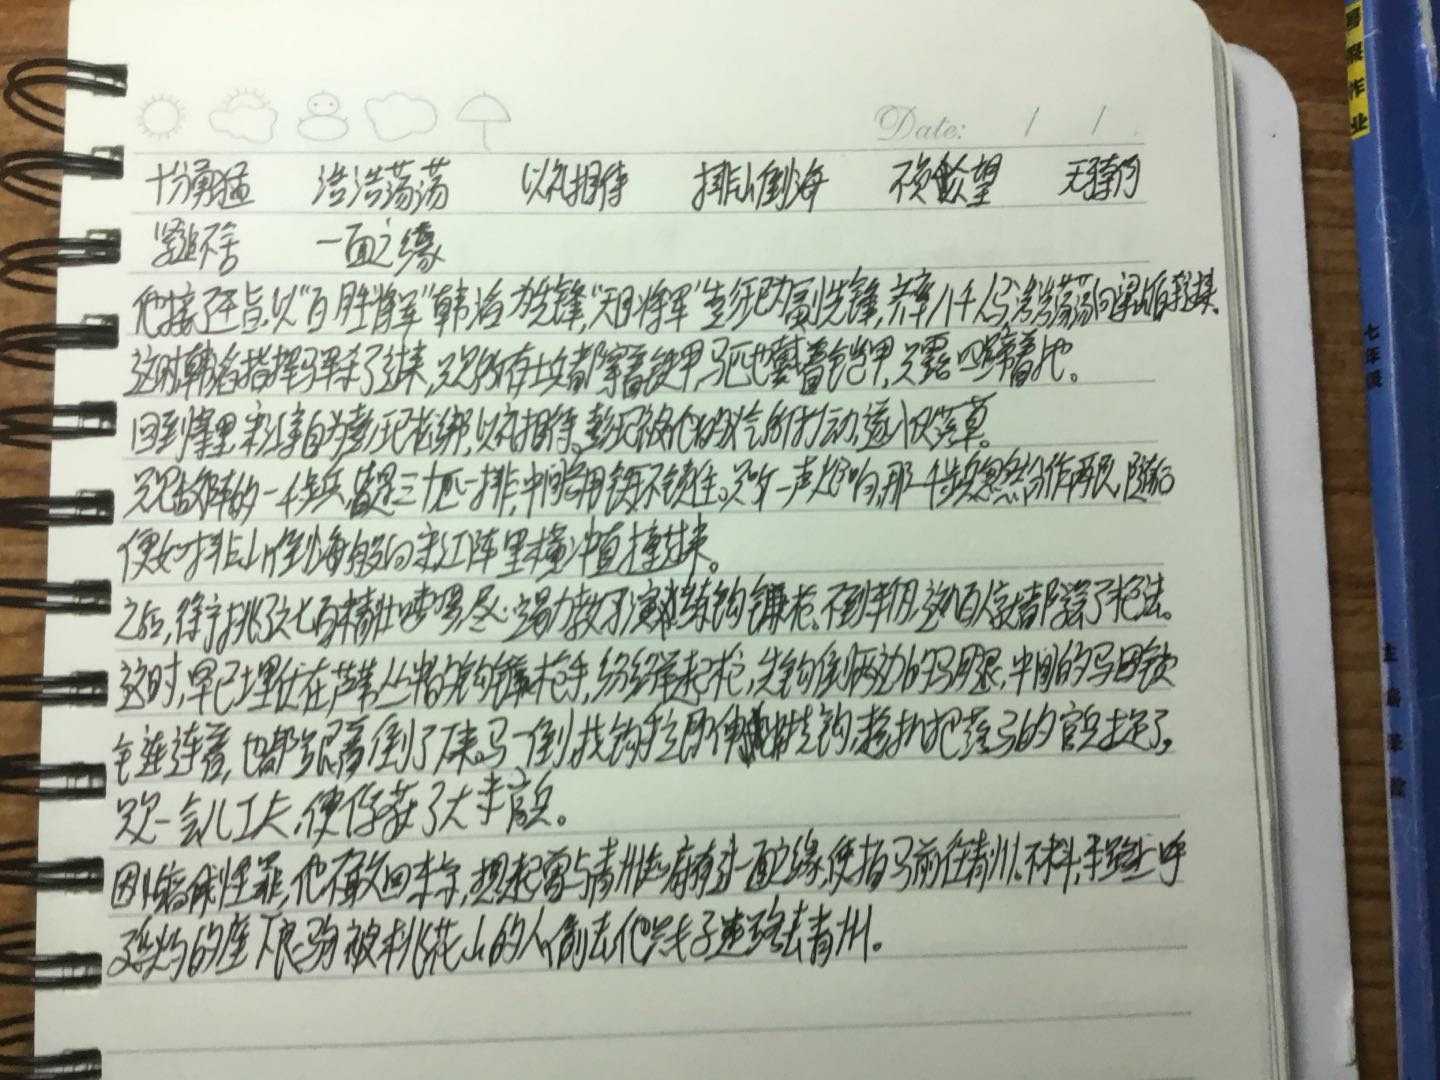 Date: / /
十分勇猛 浩浩荡荡 以礼相待 排山倒海 不负众望
紧追不舍 一面之缘
他接了圣旨,以"百胜将军"韩滔为先锋,"天目将军"彭玘为副先锋,共率八千人马浩浩荡荡向梁山泊
这时韩滔指挥马军杀了过来,只见所有士兵都穿着铁甲,马匹也戴着铠甲,只露四蹄着地。
回到寨里,宋江亲自为彭玘松绑,以礼相待。彭玘被他的义气所打动,遂入伙落草。
只见敌阵的一千步兵,皆是三十匹一排,中间用铁环锁住。只听一声炮响,那一千步兵忽然分作两段,随后
便如排山倒海般向宋江阵里横冲直撞过来。
之后,徐宁挑了七百精壮喽啰,尽竭力教习演练钩镰枪。不到半月,这七百人皆都掌握了枪法。
这时,早已埋伏在芦苇丛中的钩镰枪手,纷纷举起枪,先钩倒两边的马腿,中间的马因铁
连着,也都跟着倒了下来。马一倒,挠钩手立即伸出挠钩,趁机把落马的官兵捉了。
只一会儿工夫,便俘获了大半官兵。
因怕朝廷怪罪,他不敢回东京,想起曾与青州知府有过一面之缘,便拍马前往青州。不料,半路上呼
延灼的座下良驹被桃花山的人偷去,他只走路去青州。
暑假作业
七年级
主编